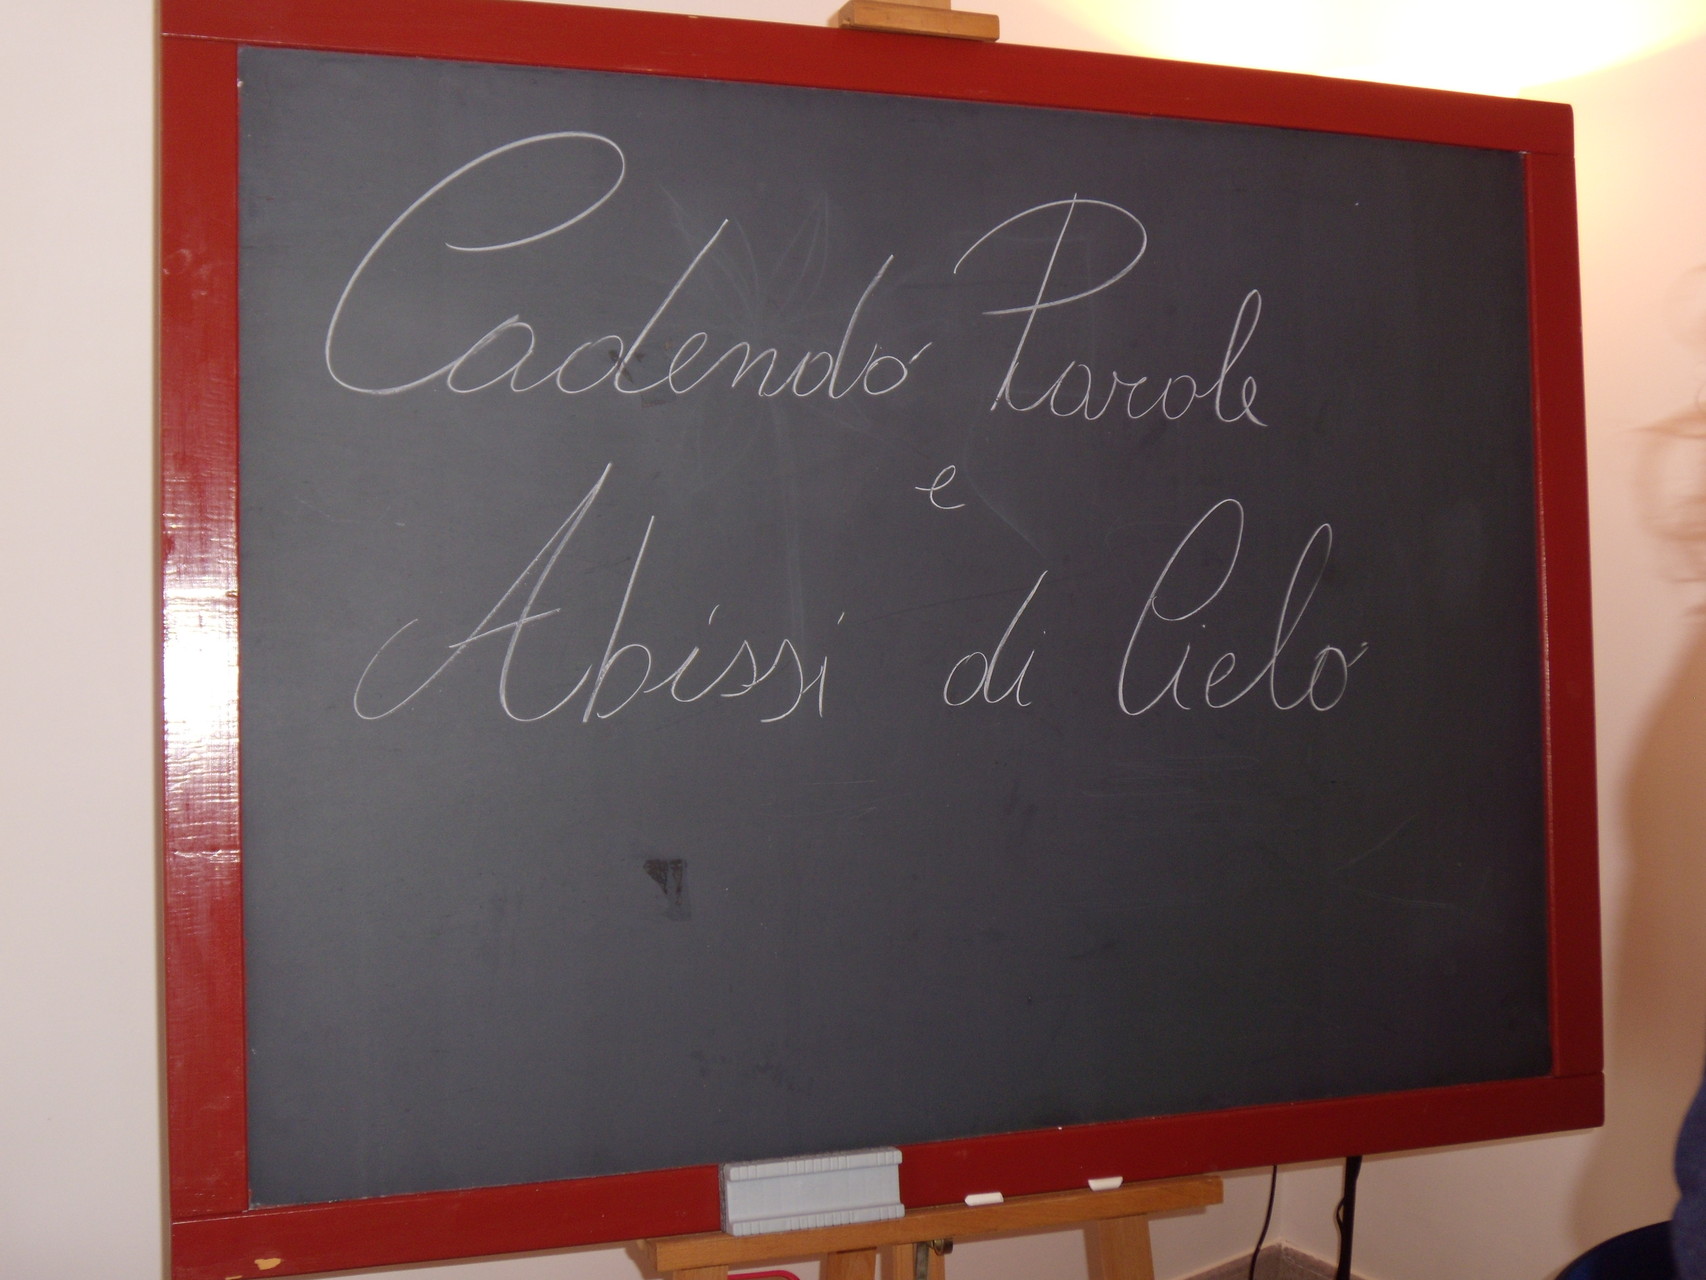 Cadendo Parole
e
Abissi di Cielo